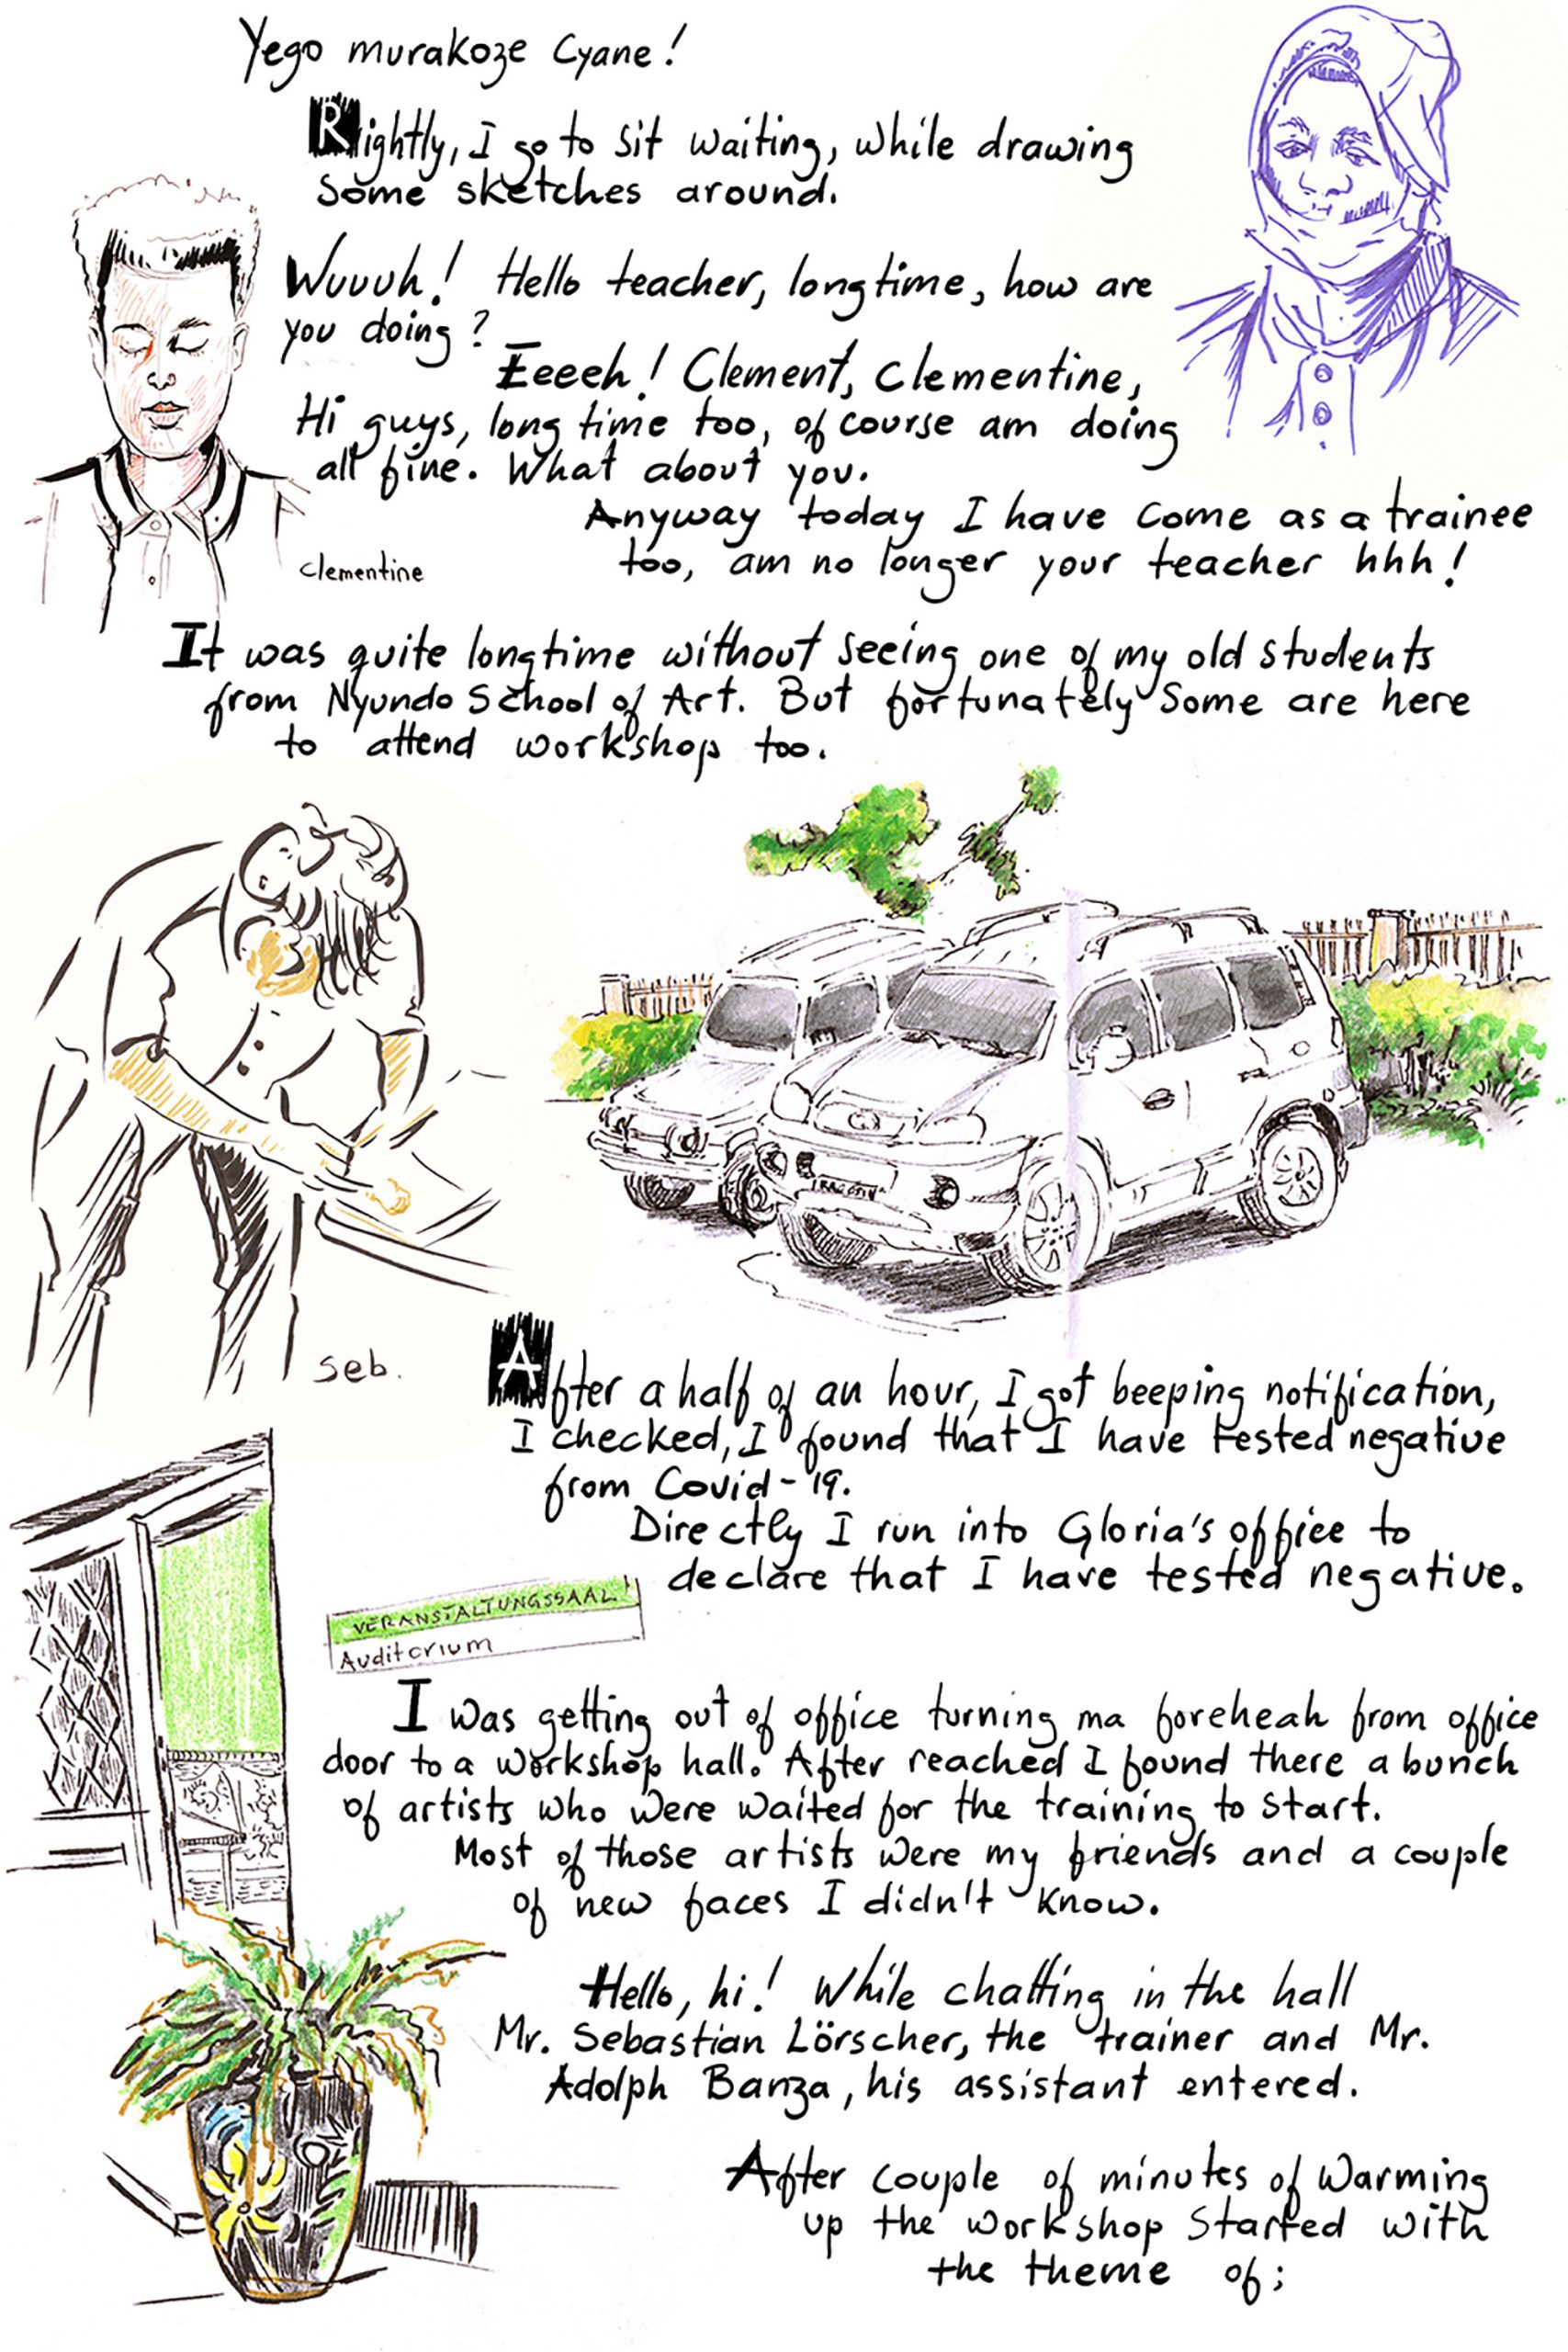 Yego murakoze Cyane!
Rightly, I go to sit waiting, while drawing
some sketches around.
Wuuuh! Hello teacher, longtime, how are
you doing?
Eeeeh! Clement, Clementine,
Hi guys, long time too, of course am doing
all fine. What about you.
Anyway today I have come as a trainee
too, am no longer your teacher hhh!
clementine
It was quite longtime without seeing one of my old students
from Nyundo School of Art. But fortunately some are here
to attend workshop too.
seb.
After a half of an hour, I got beeping notification,
I checked, I found that I have tested negative
from Covid-19.
Directly I run into Gloria's office to
declare that I have tested negative.
VERANSTALTUNGSSAAL
Auditorium
I was getting out of office turning ma foreheah from office
door to a workshop hall. After reached I found there a bunch
of artists who were waited for the training to start.
Most of those artists were my friends and a couple
of new faces I didn't know.
Hello, hi! While chatting in the hall
Mr. Sebastian Lörscher, the trainer and Mr.
Adolph Banza, his assistant entered.
After couple of minutes of warming
up the workshop started with
the theme of;